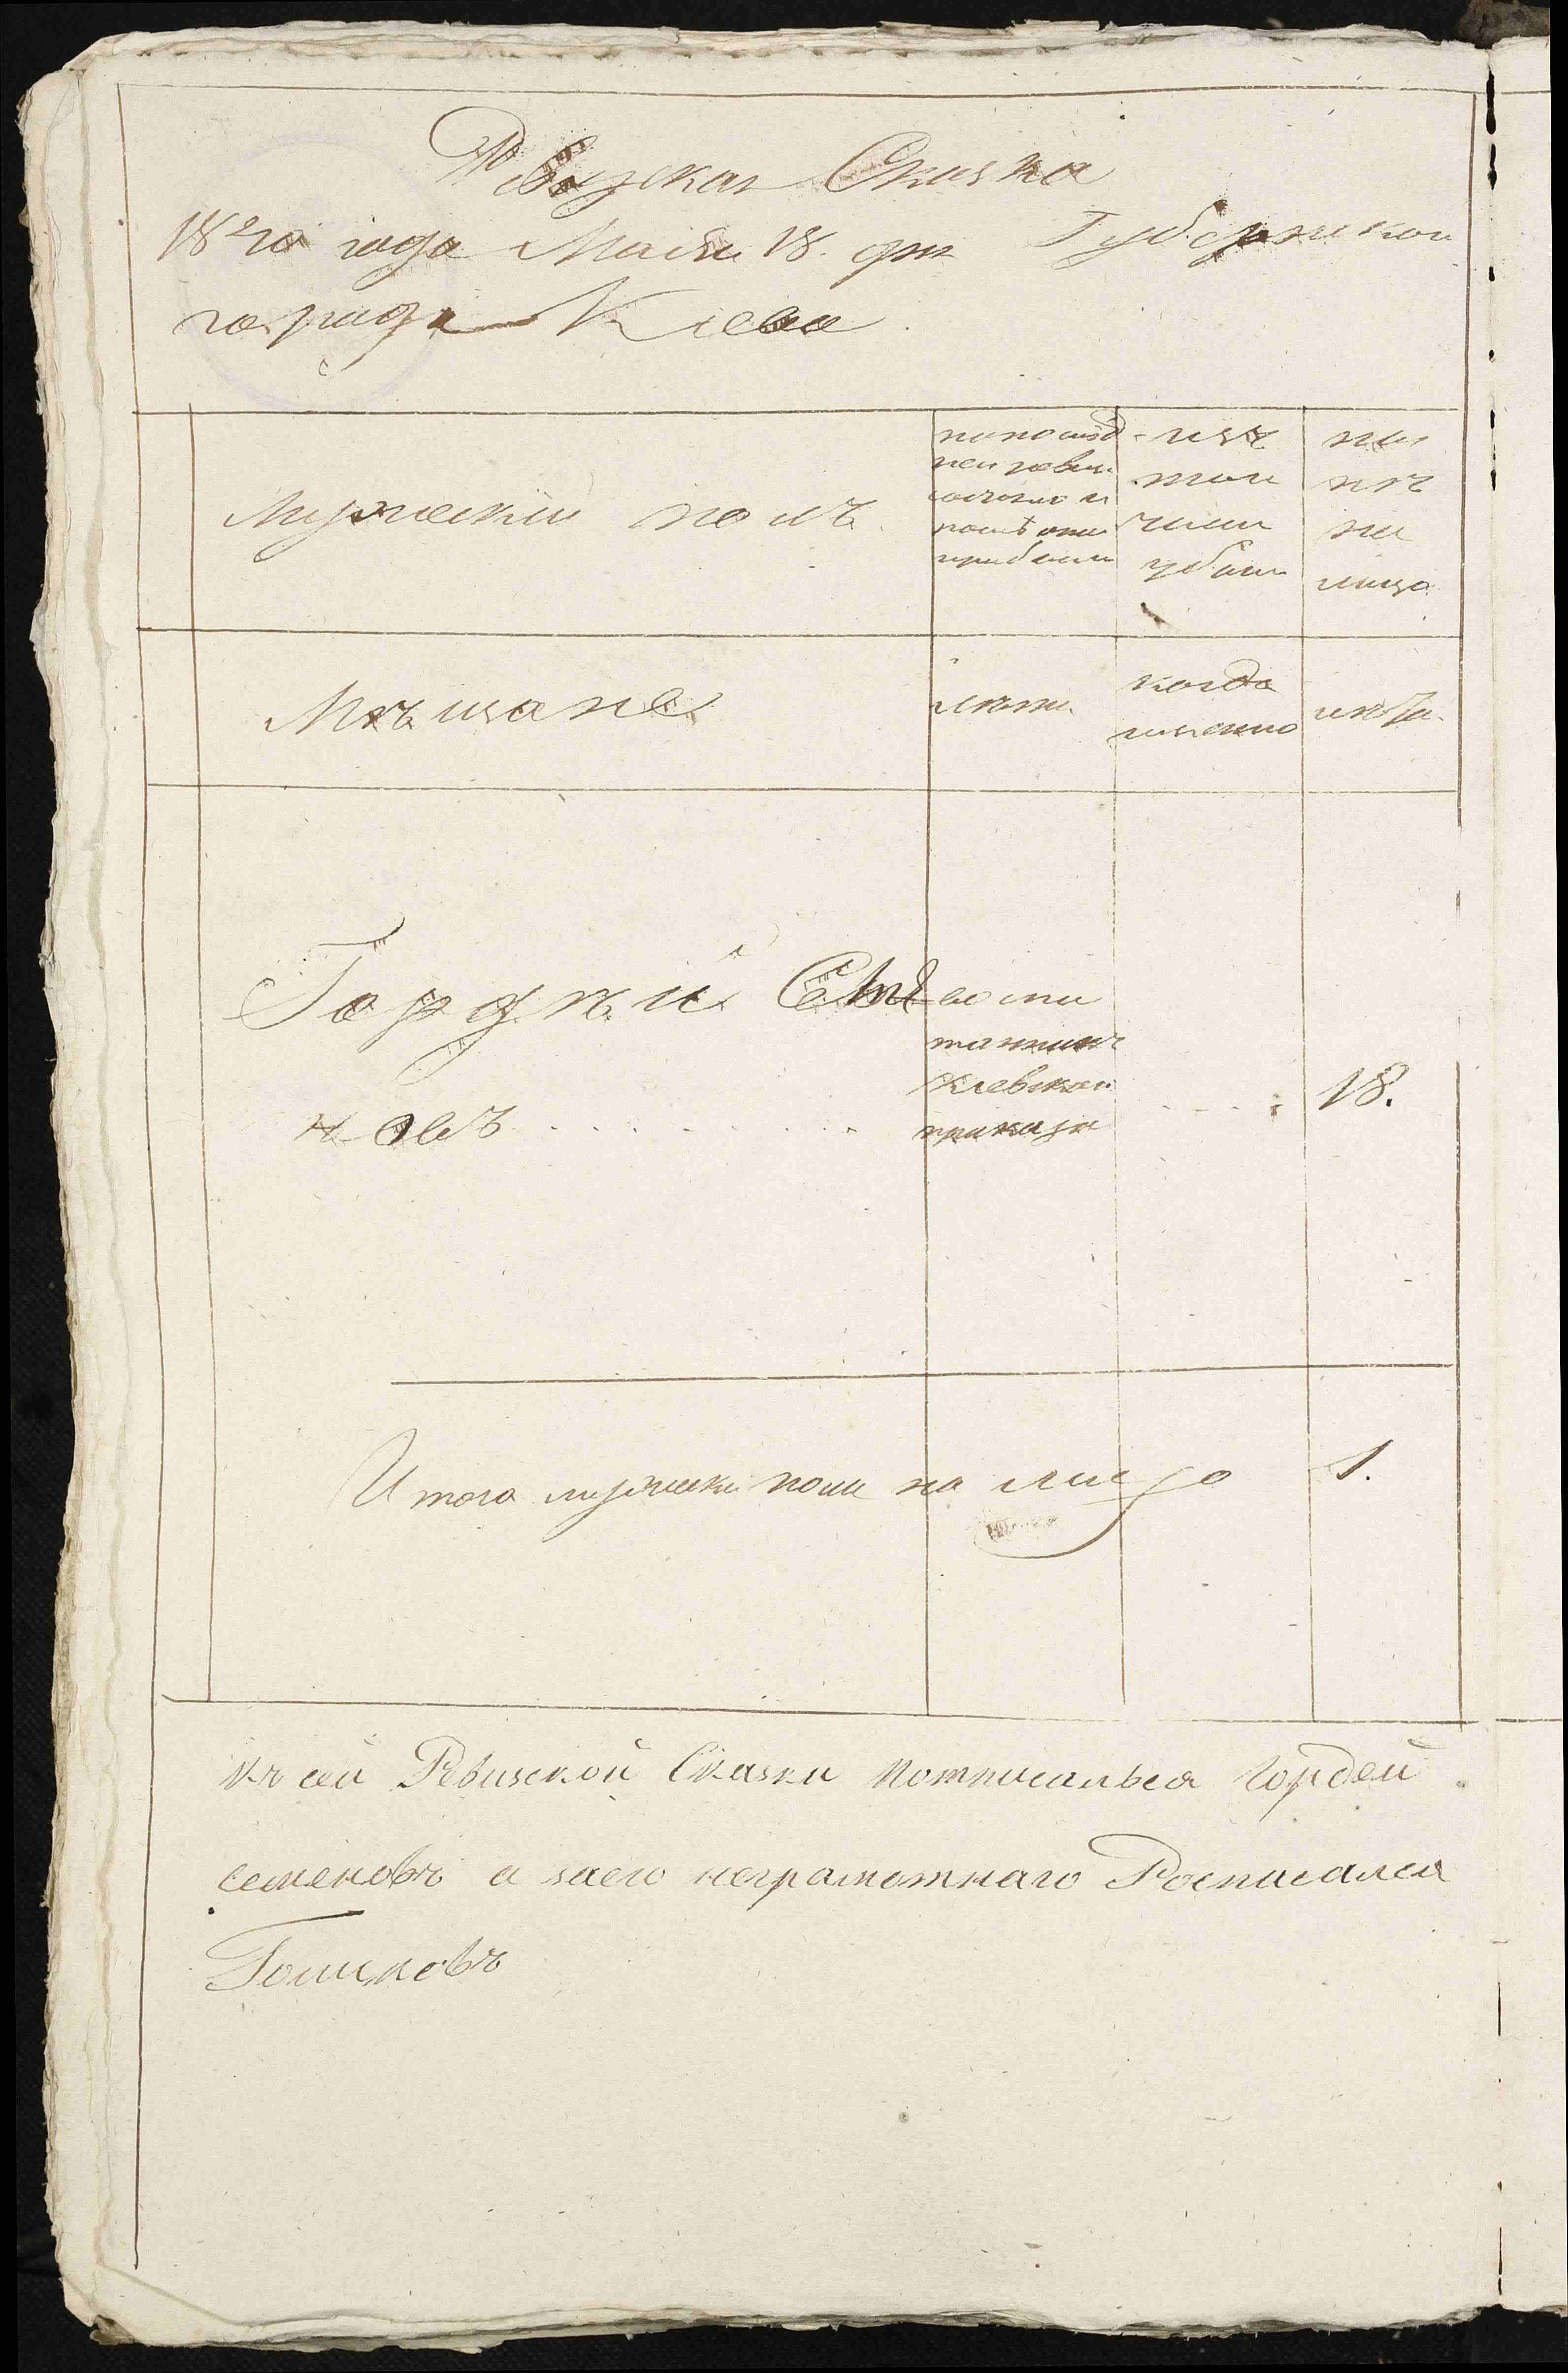 Ревизская Сказка
18 го года Маия 18. дня Губернскои
города Киева
Мужескии полъ.
по послѣд
неи ревизи
состояло и
послѣ онои
прибыло
изъ
тои
числа
убыло
ны
нѣ
на
лицо
Мѣщане
лѣты
когда
имянно
лѣта.
Гордѣй Семе
новъ
воспи
танникъ
Киевскои
приказа
18.
Итого мужеска пола на лицо 1.
Къ сей Ревизской Сказки потписалься Гордей
семеновъ а заего неграмотнаго Росписался